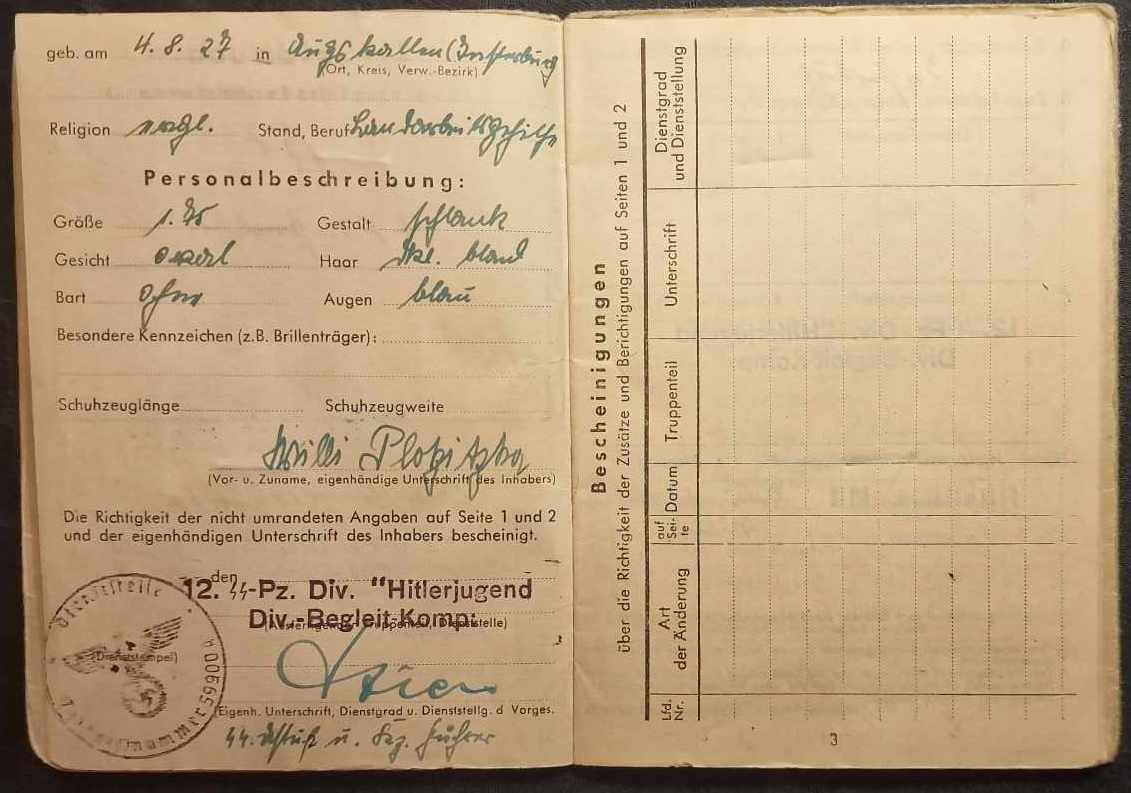 geb. am 4. 8. 27 in Augskallen (Insterburg
(Ort, Kreis, Verw.-Bezirk)
Religion evgl. Stand, Beruf Landarbeitsgehilfe
Personalbeschreibung:
Größe 1.75 Gestalt schlank
Gesicht oval Haar dkl. blond
Bart ohne Augen blau
Besondere Kennzeichen (z.B. Brillenträger):
Schuhzeuglänge Schuhzeugweite
Willi
(Vor- u. Zuname, eigenhändige Unterschrift des Inhabers)
Die Richtigkeit der nicht umrandeten Angaben auf Seite 1 und 2
und der eigenhändigen Unterschrift des Inhabers bescheinigt.
den
12. ᛋᛋ-Pz. Div. "Hitlerjugend
Div.-Begleit-Komp.
(Ausfertigender Truppenteil, Dienststelle)
Dienststelle
Feldpostnummer 59900A
(Dienststempel)
(Eigenh. Unterschrift, Dienstgrad u. Dienststellg. d Vorges.
ᛋᛋ. u. Führer
Bescheinigungen
über die Richtigkeit der Zusätze und Berichtigungen auf Seiten 1 und 2
Lfd. Nr.
Art der Änderung
auf Sei- te
Datum
Truppenteil
Unterschrift
Dienstgrad und Dienststellung
3